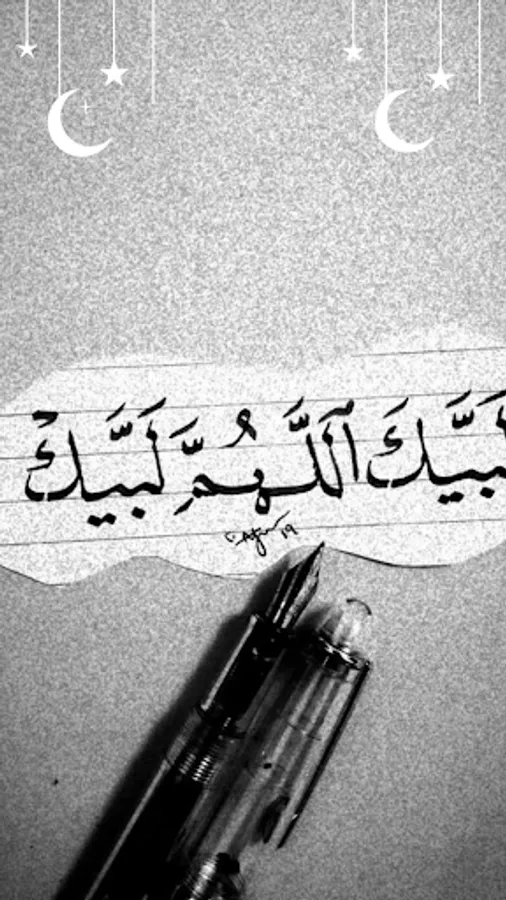 لَبَّيْكَ اَللّٰهُمَّ لَبَّيْكْ